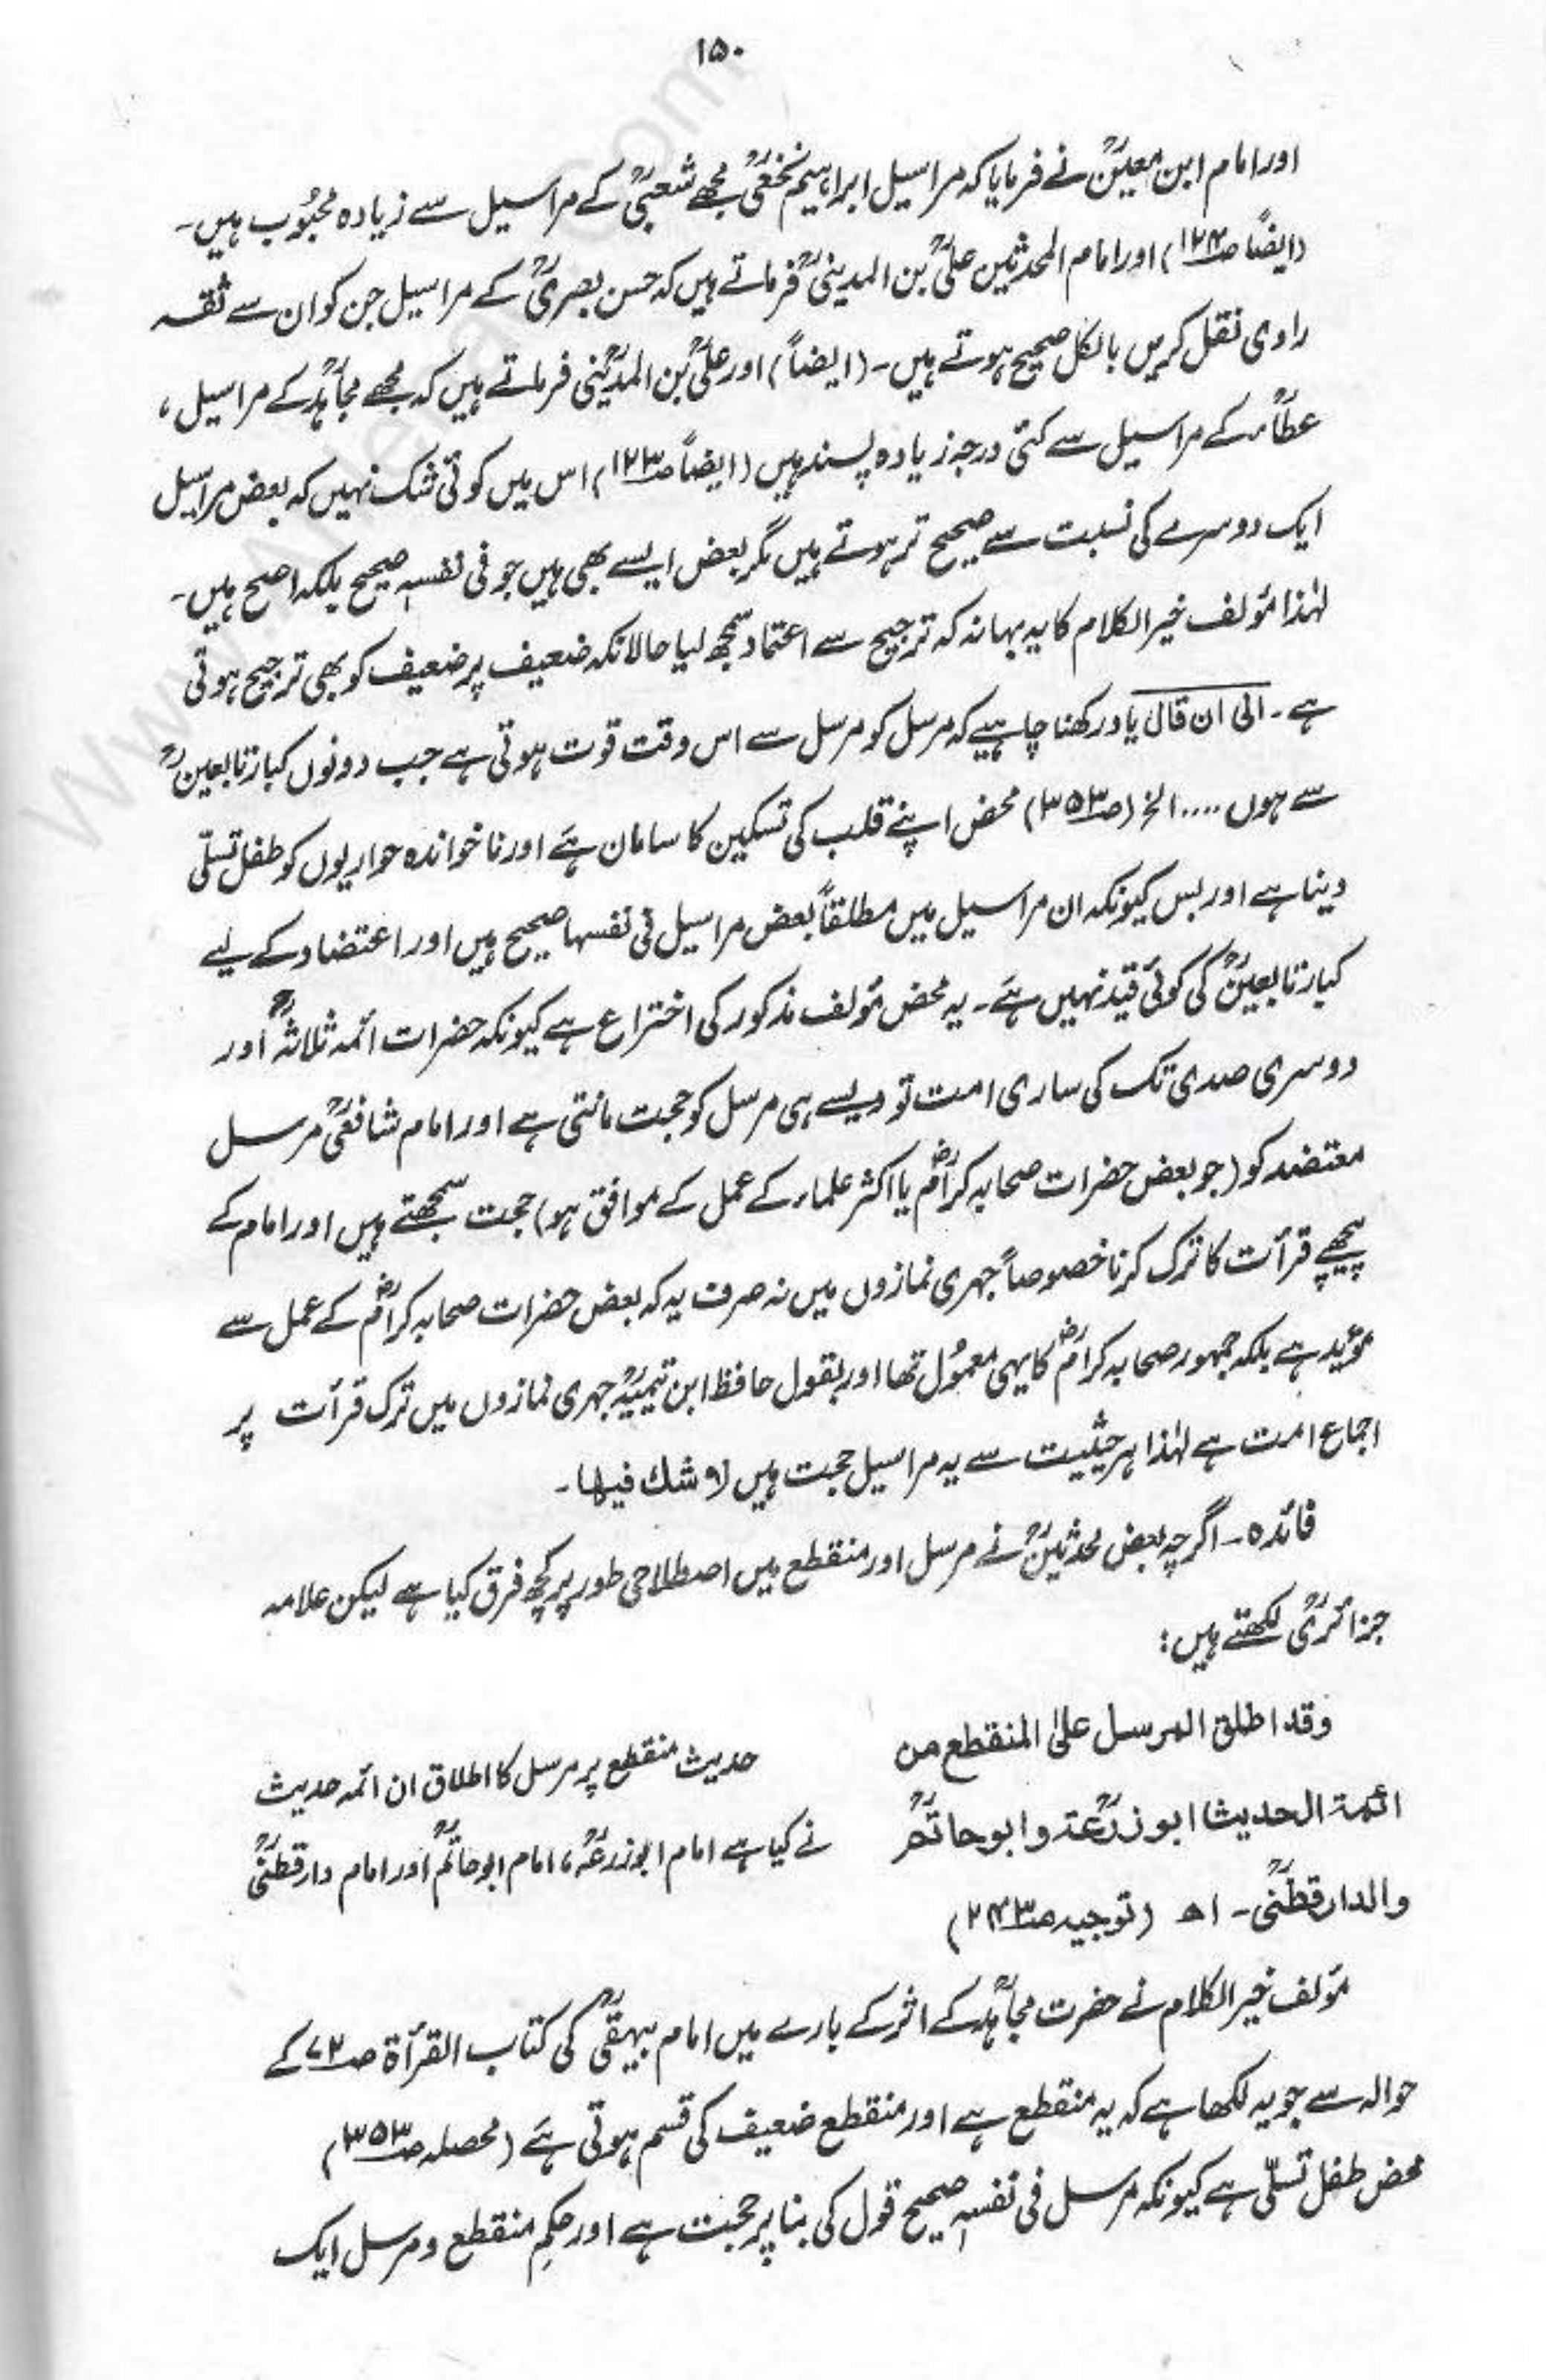 ۱۵۰
اور امام ابن معینؒ نے فرمایا کہ مراسیل ابراہیم نخعیؒ مجھے شعبیؒ کے مراسیل سے زیادہ محبُوب ہیں۔
(ایضاً ص۱۲۴) اور امام المحدثین علیؒ بن المدینیؒ فرماتے ہیں کہ حسن بصریؒ کے مراسیل جن کو ان سے ثقہ
راوی نقل کریں بالکل صحیح ہوتے ہیں۔ (ایضاً) اور علیؒ بن المدینی فرماتے ہیں کہ مجھے مجاہدؒ کے مراسیل،
عطاءؒ کے مراسیل سے کئی درجہ زیادہ پسند ہیں (ایضاً ص۱۲۳) اس میں کوئی شک نہیں کہ بعض مراسیل
ایک دوسرے کی نسبت سے صحیح تر ہوتے ہیں مگر بعض ایسے بھی ہیں جو فی نفسہٖ صحیح بلکہ اصح ہیں۔
لہٰذا مؤلف خیر الکلام کا یہ بہانہ کہ ترجیح سے اعتماد سمجھ لیا حالانکہ ضعیف پر ضعیف کو بھی ترجیح ہوتی
ہے۔ الیٰ ان قال یاد رکھنا چاہیے کہ مرسل کو مرسل سے اس وقت قوت ہوتی ہے جب دونوں کبار تابعینؒ
سے ہوں .... الخ (ص۳۵۳) محض اپنے قلب کی تسکین کا سامان ہے اور ناخواندہ حواریوں کو طفل تسلّی
دینا ہے اور بس کیونکہ ان مراسیل میں مطلقاً بعض مراسیل فی نفسہا صحیح ہیں اور اعتضاد کے لیے
کبار تابعینؒ کی کوئی قید نہیں ہے۔ یہ محض مؤلف مذکور کی اختراع ہے کیونکہ حضرات ائمہ ثلاثہؒ اور
دوسری صدی تک کی ساری امت تو ویسے ہی مرسل کو حجت مانتی ہے اور امام شافعیؒ مرسل
معتضد کو (جو بعض حضرات صحابہ کرامؓ یا اکثر علماء کے عمل کے موافق ہو) حجت سمجھتے ہیں اور امام کے
پیچھے قرأت کا ترک کرنا خصوصاً جہری نمازوں میں نہ صرف یہ کہ بعض حضرات صحابہ کرامؓ کے عمل سے
مؤید ہے بلکہ جمہور صحابہ کرامؓ کا یہی معمُول تھا اور بقول حافظ ابن تیمیہؒ جہری نمازوں میں ترک قرأت پر
اجماع امت ہے لہٰذا ہر حیثیت سے یہ مراسیل حجت ہیں لا شك فیہا۔
فائدہ۔ اگرچہ بعض محدثینؒ نے مرسل اور منقطع میں اصطلاحی طور پر کچھ فرق کیا ہے لیکن علامہ
جزائریؒ لکھتے ہیں:
وقد اطلق المرسل علیٰ المنقطع من
ائمة الحدیث ابوزرعةؒ و ابوحاتمؒ
والدارقطنیؒ۔ اھ (توجیہ ص۲۴۳)
حدیث منقطع پر مرسل کا اطلاق ان ائمہ حدیث
نے کیا ہے امام ابوزرعہؒ، امام ابوحاتمؒ اور امام دارقطنیؒ
مؤلف خیر الکلام نے حضرت مجاہدؒ کے اثر کے بارے میں امام بیہقیؒ کی کتاب القرأۃ ص۷۲ کے
حوالہ سے جو یہ لکھا ہے کہ یہ منقطع ہے اور منقطع ضعیف کی قسم ہوتی ہے (محصلہ ص۳۵۳)
محض طفل تسلّی ہے کیونکہ مرسل فی نفسہٖ صحیح قول کی بنا پر حجت ہے اور حکمِ منقطع و مرسل ایک